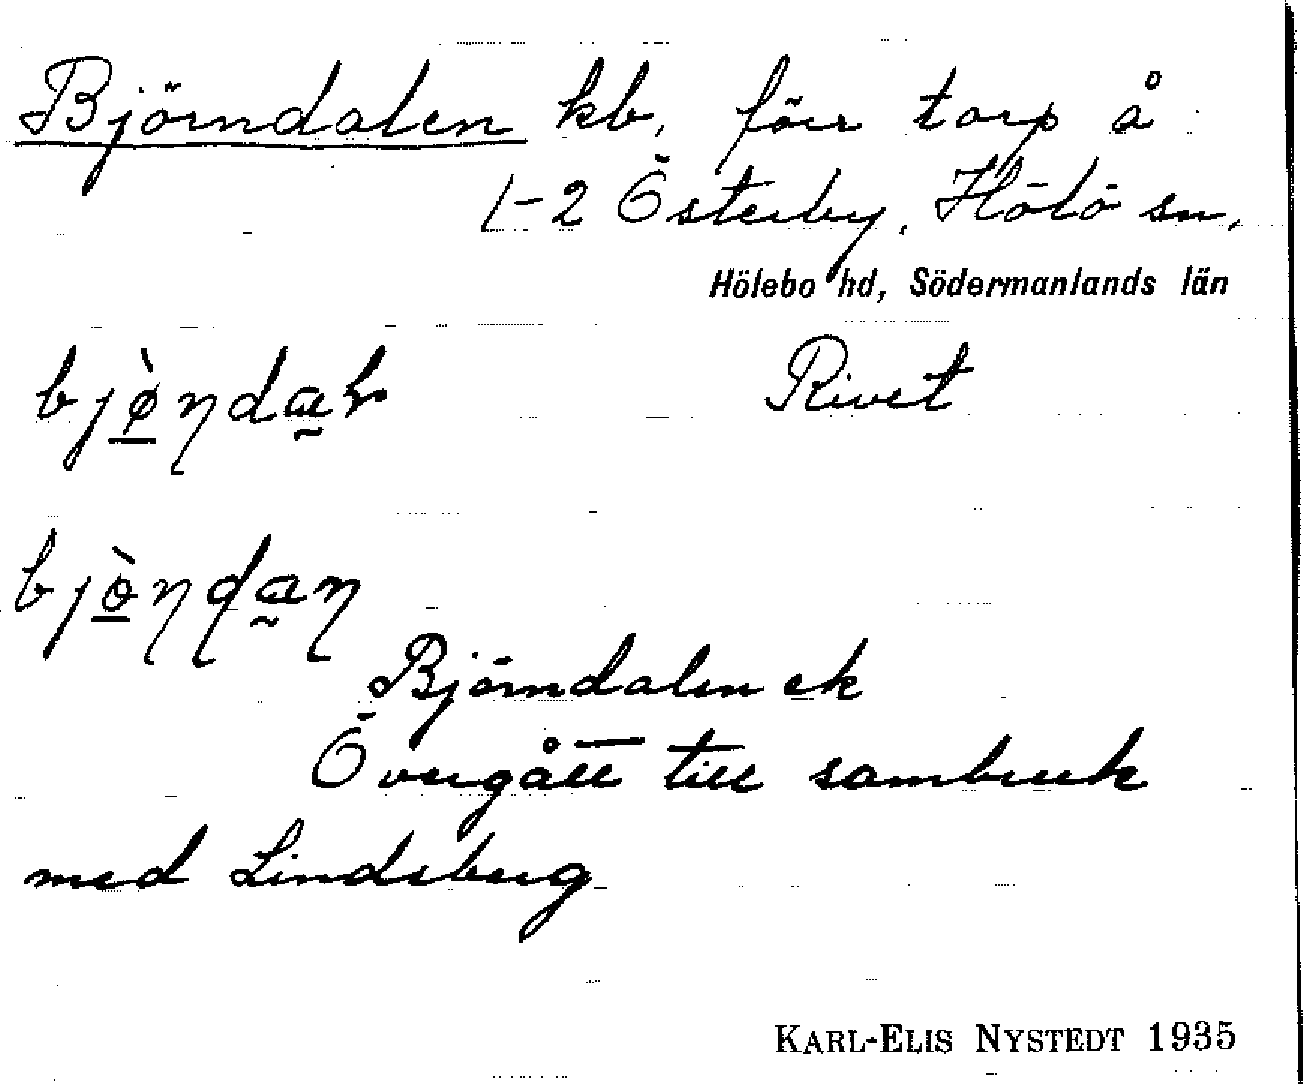 Björndalen kb, förr torp å
1-2 Österby, Hölö sn,
Hölebo hd, Södermanlands län
Rivet
Björndalen ek
Övergått till sambruk
med Lindsberg
KARL-ELIS NYSTEDT 1935